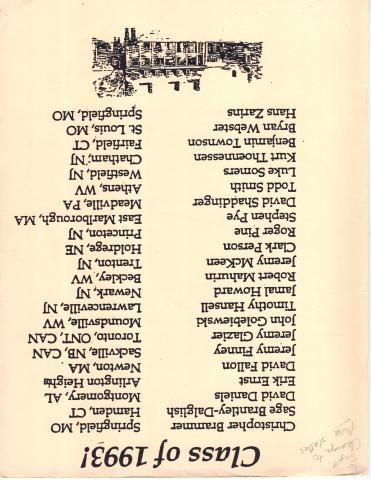 Class of 1993!
Christopher Brammer Springfield, MO
Sage Brantley-Dalglish Hamden, CT
David Daniels Montgomery, AL
Erik Ernst Arlington Heights
David Fallon Newton, MA
Jeremy Finney Sackville, NB, CAN
Jeremy Glazier Toronto, ONT, CAN
John Golebiewski Moundsville, WV
Timothy Hansell Lawrenceville, NJ
Jamal Howard Newark, NJ
Robert Mahurin Beckley, WV
Jeremy McKeen Trenton, NJ
Clark Person Holdrege, NE
Roger Pine Princeton, NJ
Stephen Pye East Marlborough, MA
David Shaddinger Meadville, PA
Todd Smith Athens, WV
Luke Somers Westfield, NJ
Kurt Thoennessen Chatham, NJ
Benjamin Townson Fairfield, CT
Bryan Webster St. Louis, MO
Hans Zarins Springfield, MO